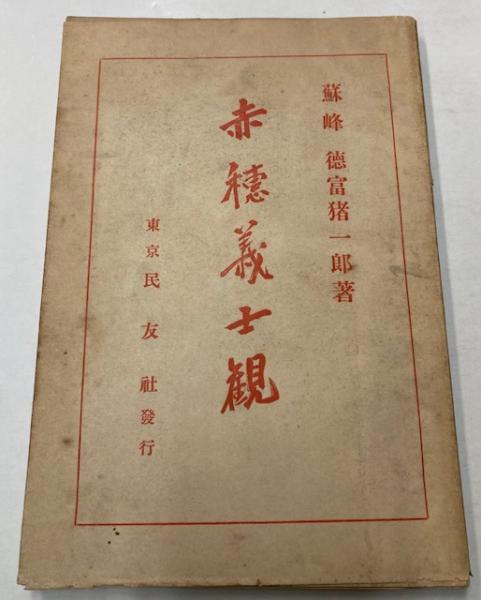 蘇峰 德富猪一郎著
赤穗義士観
東京民友社發行